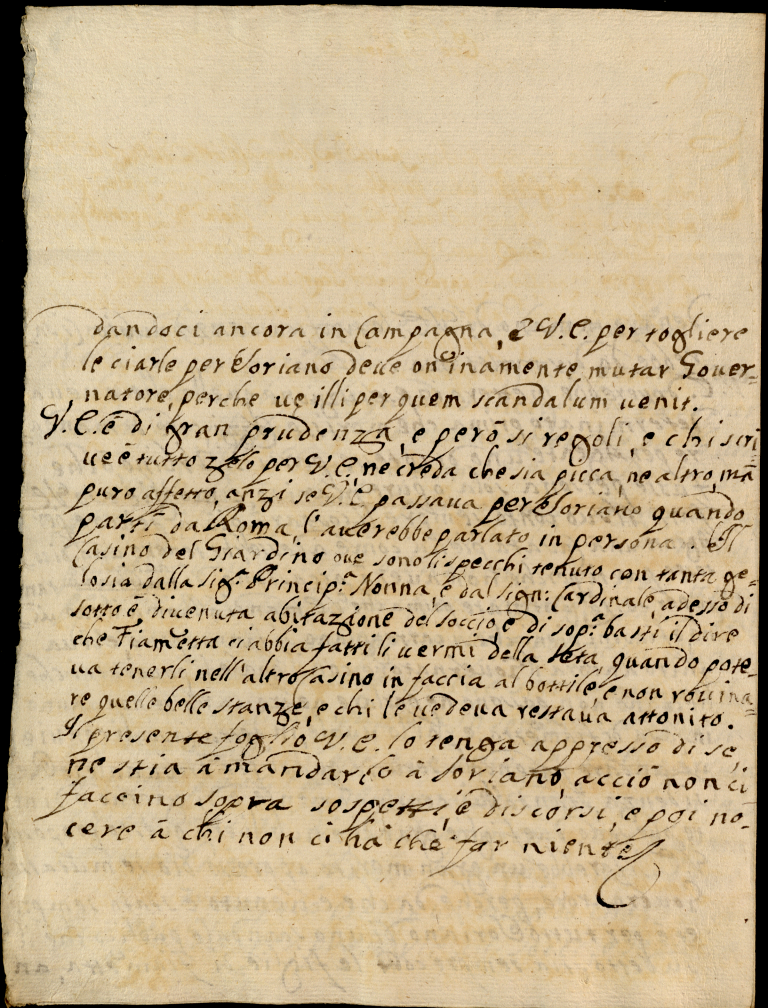 dandoci ancora in Campagna, e V.E. per togliere
le ciarle per Soriano deue onninamente mutar Gouer=
natore, perche ue illi per quem scandalum uenit.
V.E. è di gran prudenza, e però si regoli, e chi scri
ue è tutto zelo per V.E., ne creda che sia picca, ne altro, mà
puro affetto, anzi se V.E. passaua per Soriano quando
parti da Roma, l'auerebbe parlato in persona. Il
Casino del Giardino oue sono li specchi tenuto con tanta ge=
losia dalla Sig.ra Princip.a Nonna, e dal sign: Cardinale, adesso di
sotto è diuenuta abitazione del soccio, e di sop.a basti il dire
che Fiametta ci abbia fatti li uermi della seta, quando pote=
ua tenerli nell'altro Casino in faccia al bottile, e non rouina=
re quelle belle stanze, e chi le uedeua restaua attonito.
Il presente foglio V.E. lo tenga appresso di se,
ne stia à mandarlo à Soriano, acciò non ci
faccino sopra sospetti, e discorsi, e poi no=
cere à chi non ci hà che far niente